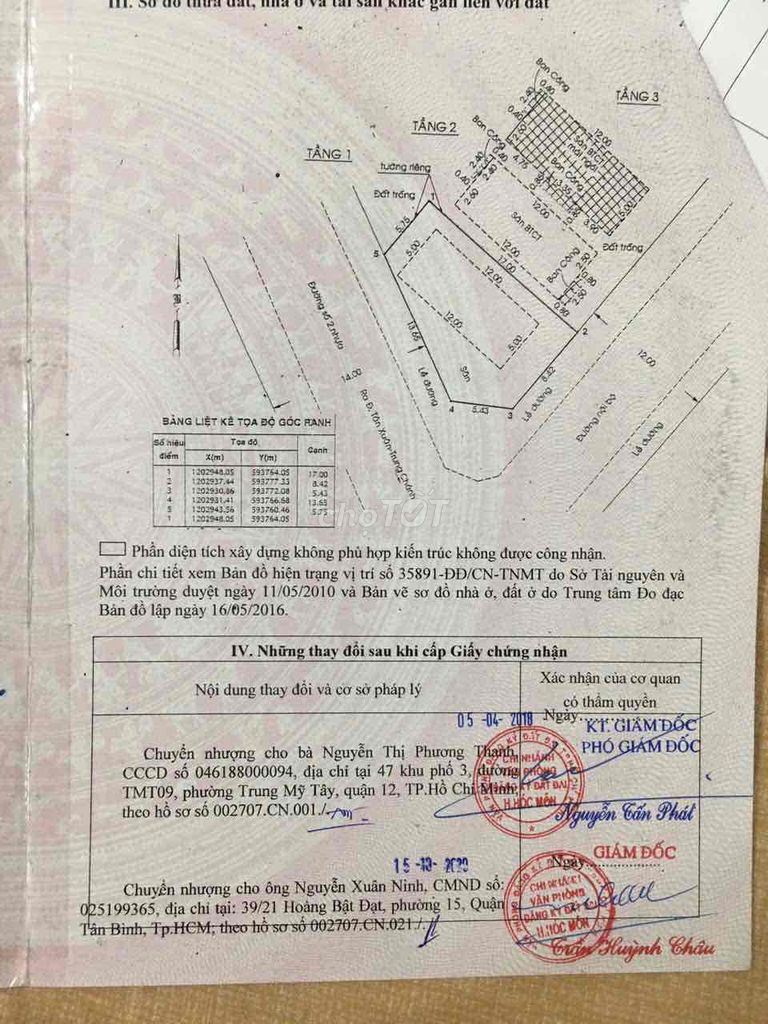 III. Sơ đồ thửa đất, nhà ở và tài sản khác gắn liền với đất
TẦNG 1
TẦNG 2
TẦNG 3
tường riêng
Đất trống
Ban Công
0.40
2.40
12.00
Sân BTCT
mái ngói
Ban Công
4.75
3.90
5.00
Ban Công
2.40
0.40
2.60
12.00
Sân BTCT
12.00
Đất trống
Ban Công
0.80
0.80
1
2
3
4
5
5.75
5.00
12.00
17.00
12.00
5.00
13.65
Sân
5.43
8.42
Lề đường
Lề đường
Đường nội bộ
Lề đường
12.00
Đường số 2 nhựa
14.00
Ra Đ. Tân Xuân-Trung Chánh
BẢNG LIỆT KÊ TỌA ĐỘ GÓC RANH
Số hiệu điểm Tọa độ Cạnh
X(m) Y(m)
1 1202948.05 593764.05
17.00
2 1202937.44 593777.33
8.42
3 1202930.86 593772.08
5.43
4 1202931.41 593766.68
13.65
5 1202943.56 593760.46
5.75
1 1202948.05 593764.05
chợTỐT
Phần diện tích xây dựng không phù hợp kiến trúc không được công nhận.
Phần chi tiết xem Bản đồ hiện trạng vị trí số 35891-ĐĐ/CN-TNMT do Sở Tài nguyên và
Môi trường duyệt ngày 11/05/2010 và Bản vẽ sơ đồ nhà ở, đất ở do Trung tâm Đo đạc
Bản đồ lập ngày 16/05/2016.
IV. Những thay đổi sau khi cấp Giấy chứng nhận
Nội dung thay đổi và cơ sở pháp lý
Xác nhận của cơ quan
có thẩm quyền
05 -04- 2018 Ngày
KT. GIÁM ĐỐC
PHÓ GIÁM ĐỐC
Chuyển nhượng cho bà Nguyễn Thị Phương Thanh,
CCCD số 046188000094, địa chỉ tại 47 khu phố 3, đường
TMT09, phường Trung Mỹ Tây, quận 12, TP.Hồ Chí Minh,
theo hồ sơ số 002707.CN.001./.
CHI NHÁNH
VĂN PHÒNG
ĐĂNG KÝ ĐẤT ĐAI
H.HÓC MÔN
Nguyễn Tấn Phát
15 -10- 2020 Ngày
GIÁM ĐỐC
Chuyển nhượng cho ông Nguyễn Xuân Ninh, CMND số:
025199365, địa chỉ tại: 39/21 Hoàng Bật Đạt, phường 15, Quận
Tân Bình, Tp.HCM; theo hồ sơ số 002707.CN.021./.
CHI NHÁNH
VĂN PHÒNG
ĐĂNG KÝ ĐẤT ĐAI
H.HÓC MÔN
Trần Huỳnh Châu